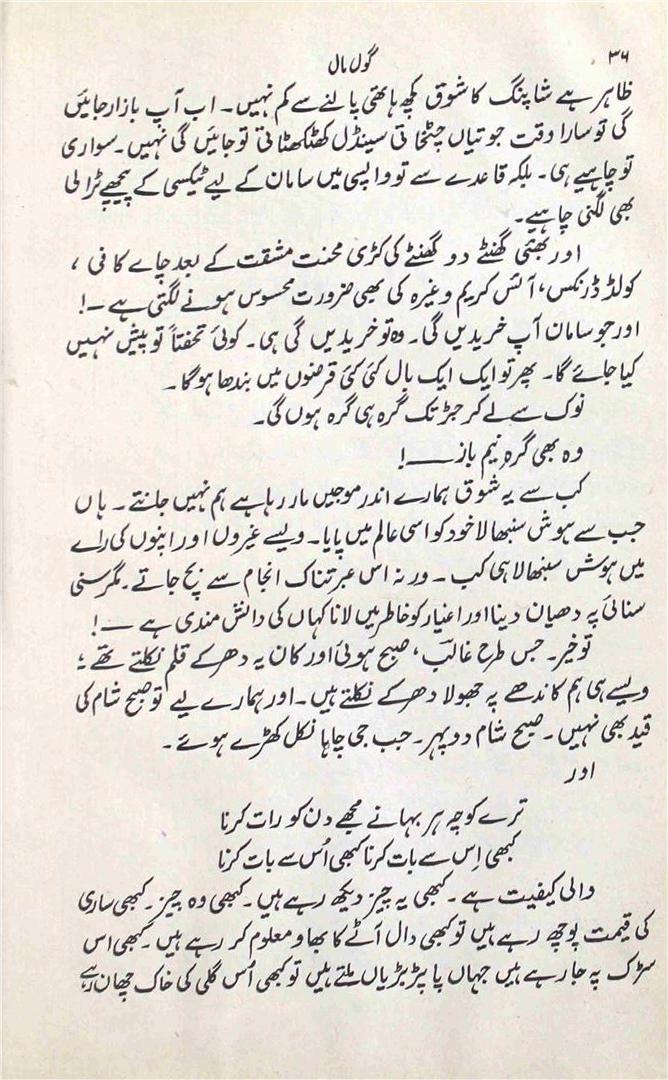 ۳۶
گول مال
ظاہر ہے شاپنگ کا شوق کچھ ہاتھی پالنے سے کم نہیں۔ اب آپ بازار جائیں
گی تو سارا وقت جوتیاں چٹخاتی سینڈل کھٹکھٹاتی تو جائیں گی نہیں۔ سواری
تو چاہیے ہی۔ بلکہ قاعدے سے تو واپسی میں سامان کے لیے ٹیکسی کے پیچھے ٹرالی
بھی لگنی چاہیے۔
اور بھئی گھنٹے دو گھنٹے کی کڑی محنت مشقت کے بعد چاے کافی ،
کولڈ ڈرنکس، آئس کریم وغیرہ کی بھی ضرورت محسوس ہونے لگتی ہے ۔!
اور جو سامان آپ خریدیں گی۔ وہ تو خریدیں گی ہی۔ کوئی تحفتاً تو پیش نہیں
کیا جائے گا۔ پھر تو ایک ایک بال کئی کئی قرضوں میں بندھا ہوگا۔
نوک سے لے کر جڑ تک گرہ ہی گرہ ہوں گی۔
وہ بھی گرہِ نیم باز ــــ!
کب سے یہ شوق ہمارے اندر موجیں مار رہا ہے ہم نہیں جانتے۔ ہاں
جب سے ہوش سنبھالا خود کو اسی عالم میں پایا۔ ویسے غیروں اور اپنوں کی راے
میں ہوش سنبھالا ہی کب ۔ ورنہ اس عبرتناک انجام سے بچ جاتے۔ مگر سنی
سنائی پہ دھیان دینا اور اغیار کو خاطر میں لانا کہاں کی دانش مندی ہے ـــ!
تو خیر۔ جس طرح غالب، صبح ہوئی اور کان پہ دھر کے قلم نکلتے تھے ؛
ویسے ہی ہم کاندھے پہ جھولا دھر کے نکلتے ہیں۔ اور ہمارے لیے تو صبح شام کی
قید بھی نہیں۔ صبح شام دوپہر۔ جب جی چاہا نکل کھڑے ہوئے۔
اور
ترے کوچہ ہر بہانے مجھے دن کو رات کرنا
کبھی اِس سے بات کرنا کبھی اُس سے بات کرنا
والی کیفیت ہے ۔ کبھی یہ چیز دیکھ رہے ہیں۔ کبھی وہ چیز۔ کبھی ساری
کی قیمت پوچھ رہے ہیں تو کبھی دال آٹے کا بھاو معلوم کر رہے ہیں ۔ کبھی اس
سڑک پہ جا رہے ہیں جہاں پاپڑ بڑیاں ملتے ہیں تو کبھی اُس گلی کی خاک چھان رہے